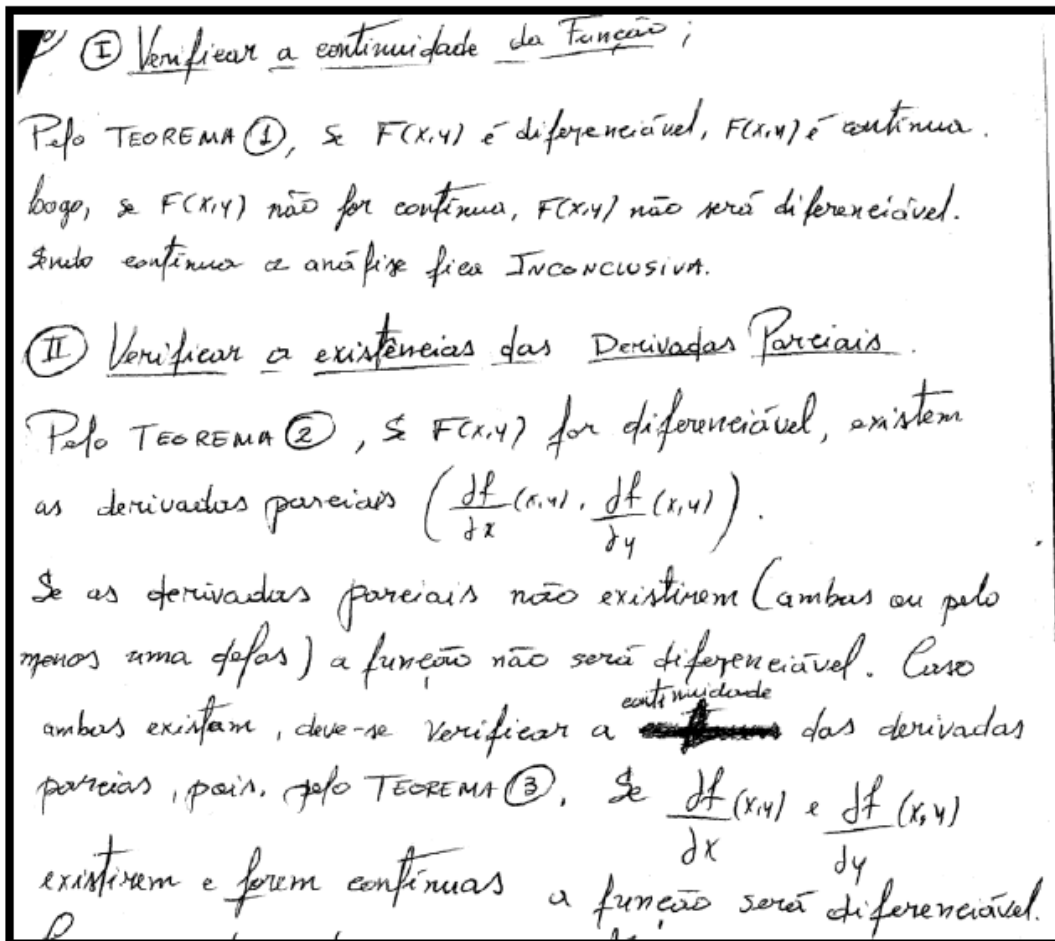 Ⓘ Verificar a continuidade da Função;
Pelo TEOREMA ①, Se F(x,y) é diferenciável, F(x,y) é contínua.
Logo, se F(x,y) não for contínua, F(x,y) não será diferenciável.
Sendo contínua a análise fica INCONCLUSIVA.
Ⓘ Ⓘ Verificar a existências das Derivadas Parciais.
Pelo TEOREMA ②, Se F(x,y) for diferenciável, existem
as derivadas parciais (∂f/∂x (x,y), ∂f/∂y (x,y)).
Se as derivadas parciais não existirem (ambas ou pelo
menos uma delas) a função não será diferenciável. Caso
ambas existam, deve-se Verificar a continuidade das derivadas
parciais, pois, pelo TEOREMA ③, Se ∂f/∂x (x,y) e ∂f/∂y (x,y)
existirem e forem contínuas a função será diferenciável.